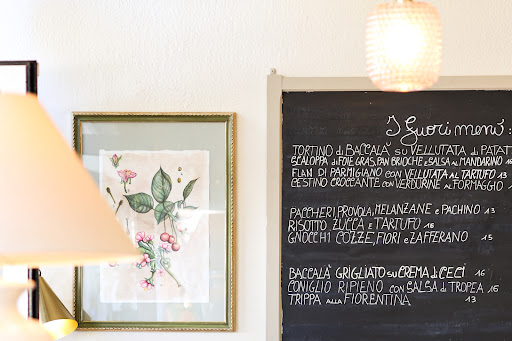 I Fuori menù:
TORTINO di BACCALÀ su VELLUTATA di PATAT
SCALOPPA di FOIE GRAS, PAN BRIOCHE e SALSA al MANDARINO 16
FLAN DI PARMIGIANO con VELLUTATA al TARTUFO 1
CESTINO CROCCANTE con VERDURINE al FORMAGGIO 1
PACCHERI, PROVOLA, MELANZANE e PACHINO 13
RISOTTO ZUCCA e TARTUFO 16
GNOCCHI COZZE, FIORI e ZAFFERANO 15
BACCALÀ GRIGLIATO su CREMA di CECI 16
CONIGLIO RIPIENO con SALSA di TROPEA 16
TRIPPA alla FIORENTINA 13